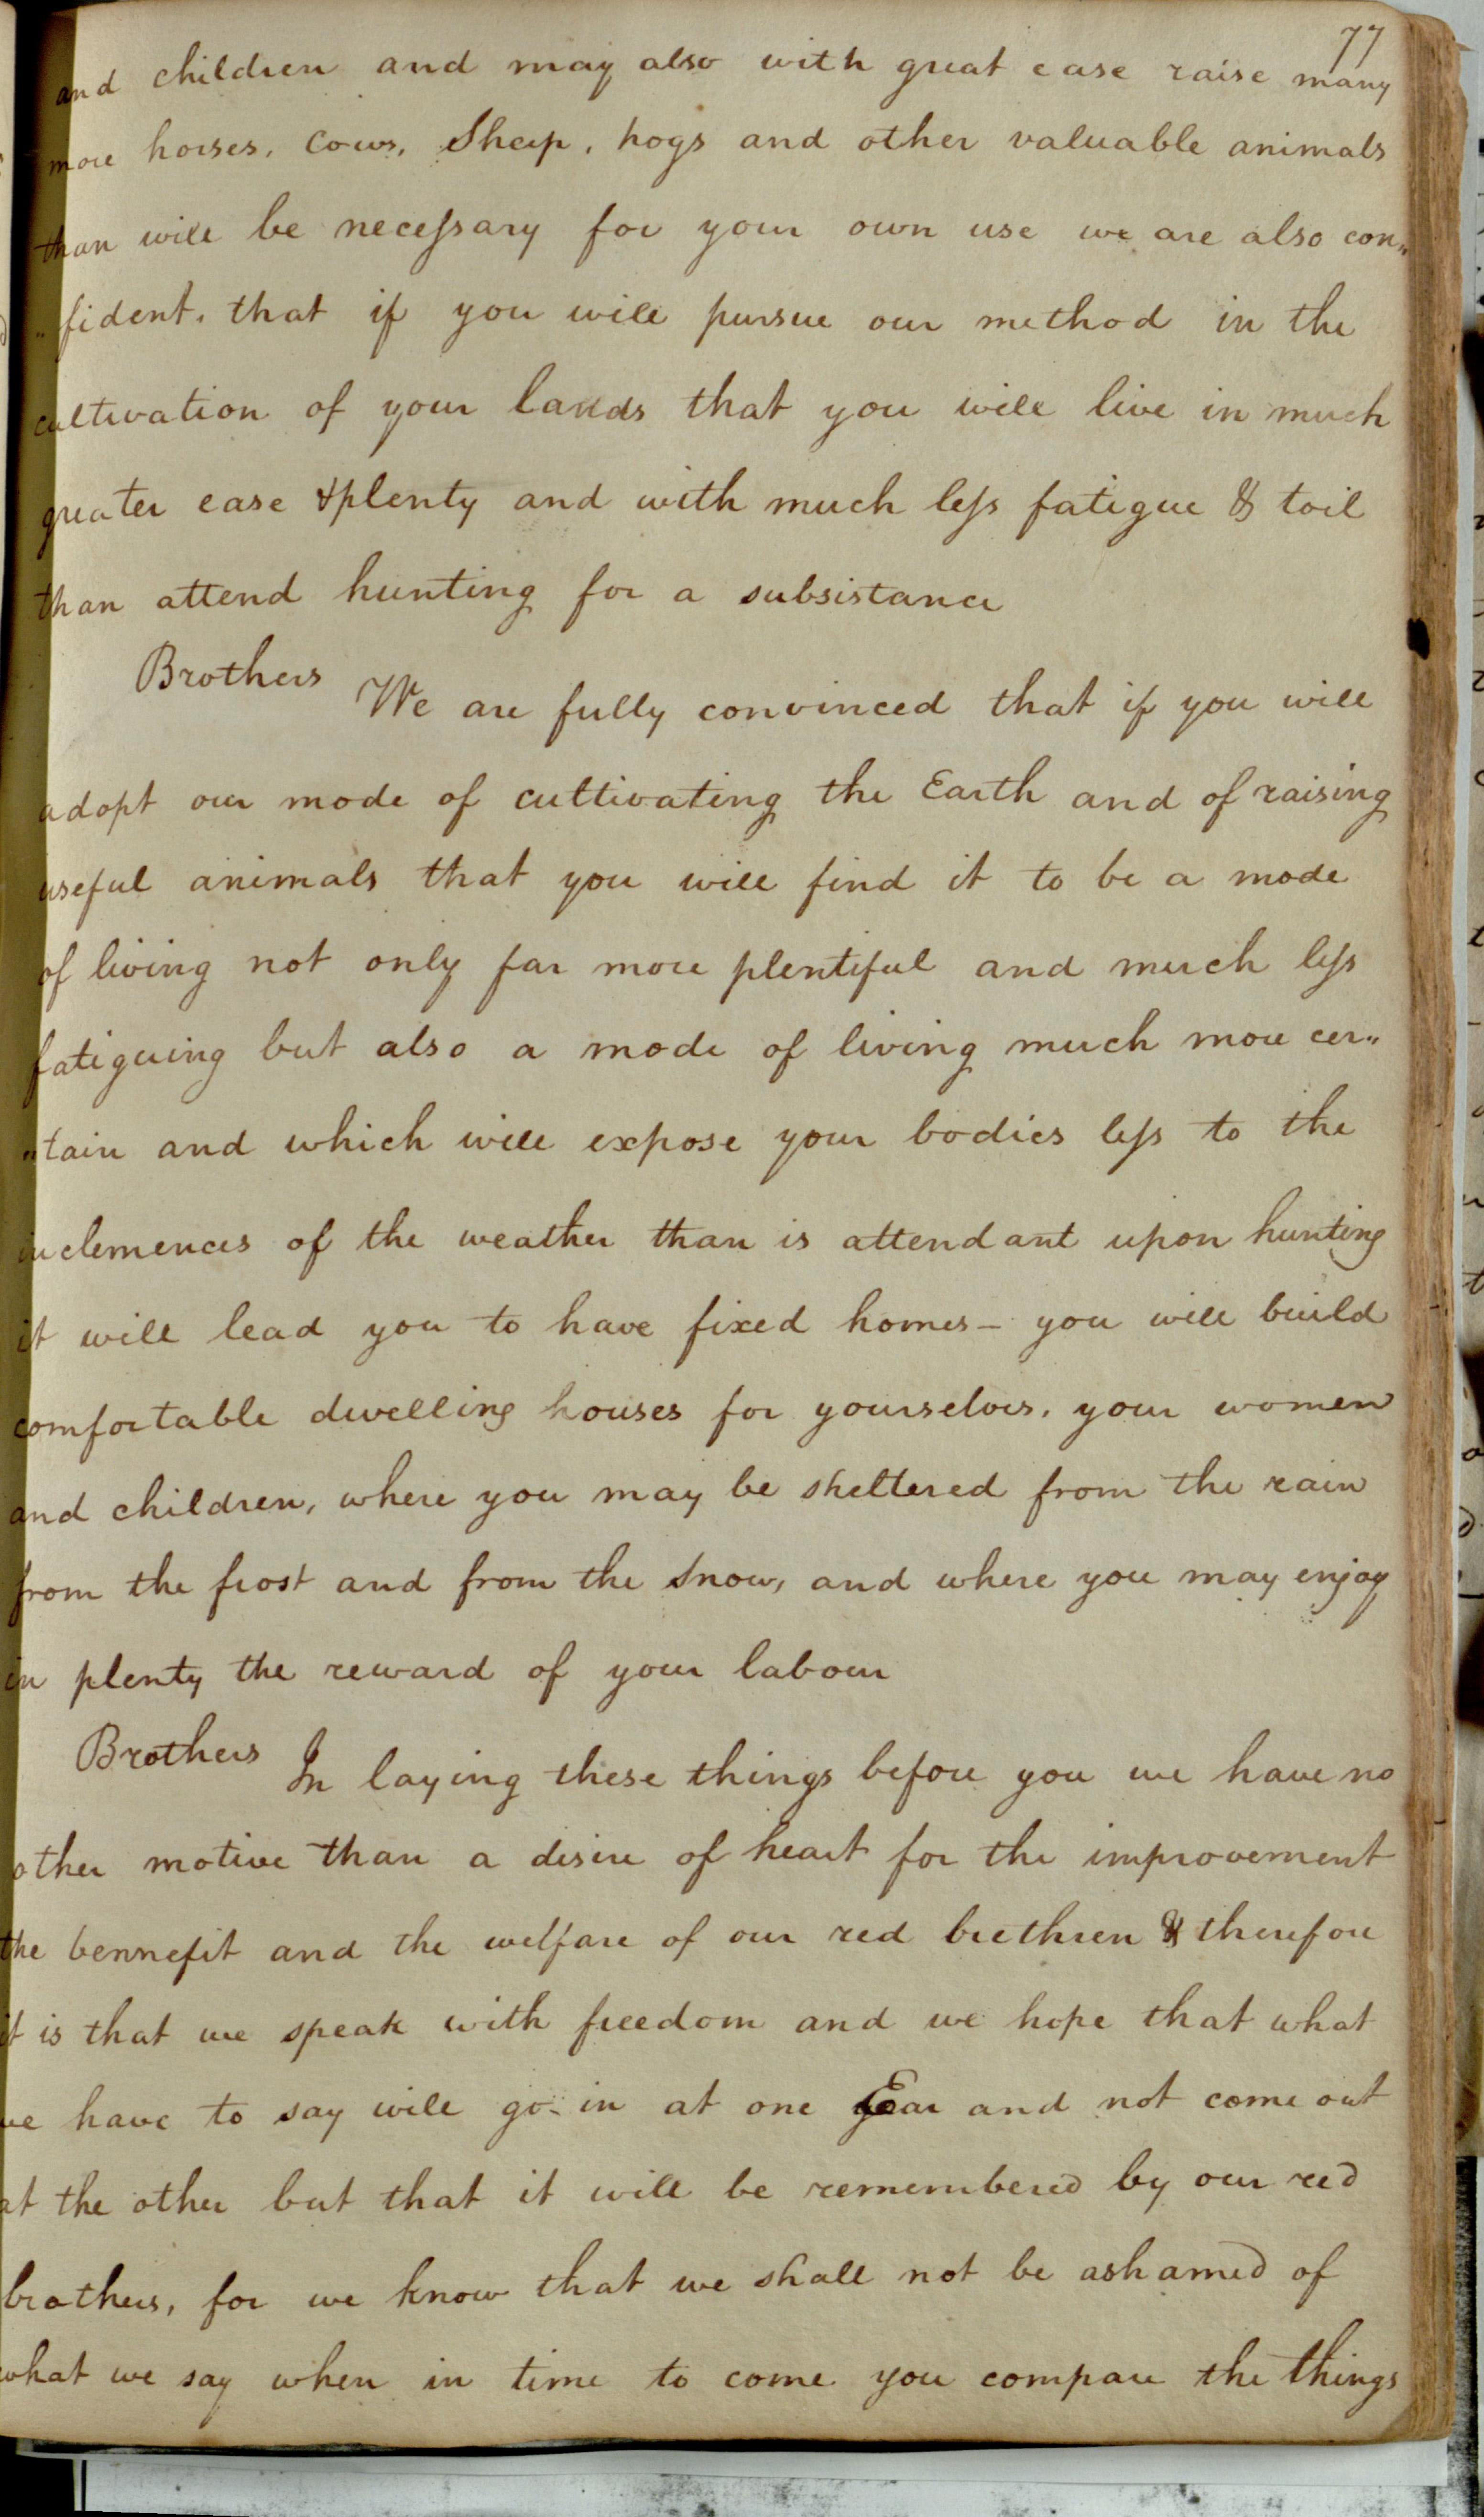 77
and children and may also with great ease raise many
more horses, Cows, Sheep, hogs and other valuable animals
than will be necessary for your own use we are also con„
„fident, that if you will pursue our method in the
cultivation of your lands that you will live in much
greater ease & plenty and with much less fatigue & toil
than attend hunting for a subsistance
Brothers We are fully convinced that if you will
adopt our mode of cultivating the Earth and of raising
useful animals that you will find it to be a mode
of living not only far more plentiful and much less
fatiguing but also a mode of living much more cer„
„tain and which will expose your bodies less to the
inclemences of the weather than is attendant upon hunting
it will lead you to have fixed homes – you will build
comfortable dwelling houses for yourselves, your women
and children, where you may be sheltered from the rain
from the frost and from the Snow, and where you may enjoy
in plenty the reward of your labour
Brothers In laying these things before you we have no
other motive than a desire of heart for the improvement
the bennefit and the welfare of our red brethren & therefore
it is that we speak with freedom and we hope that what
we have to say will go in at one Ear and not come out
at the other but that it will be remembered by our red
brothers, for we know that we shall not be ashamed of
what we say when in time to come you compare the things